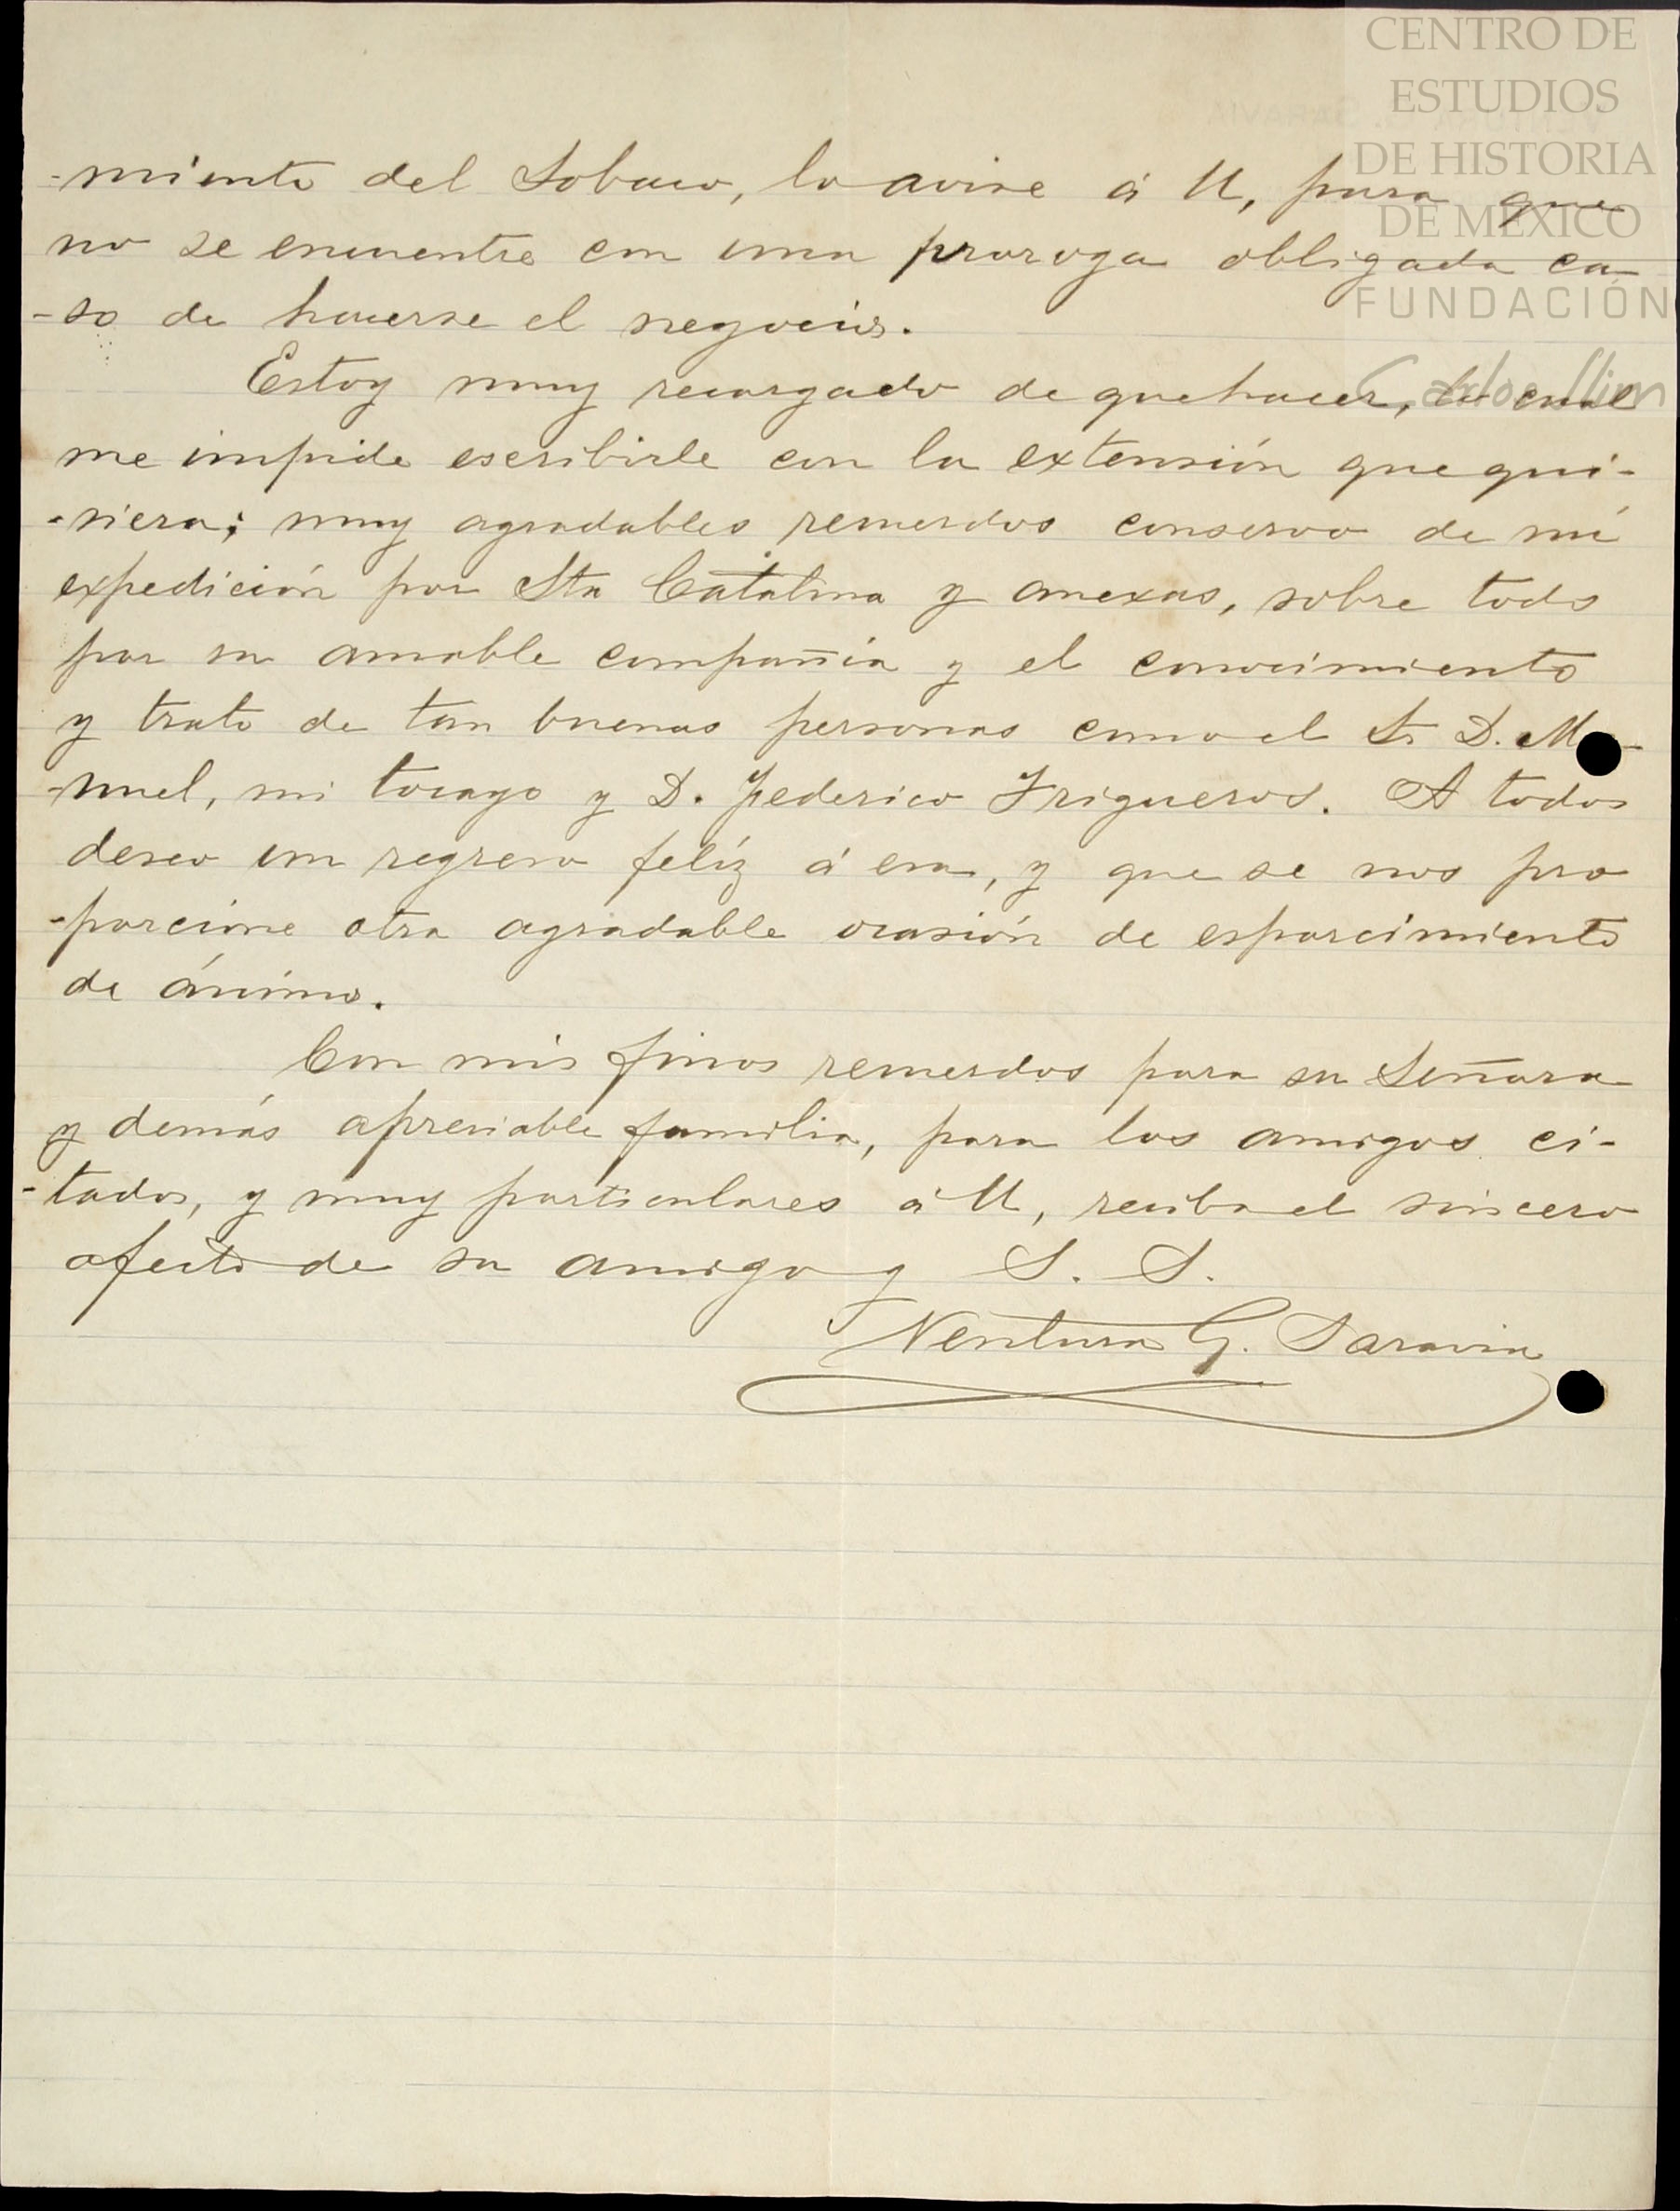 CENTRO DE
ESTUDIOS
DE HISTORIA
DE MÉXICO
FUNDACIÓN
Carlos Slim
-miento del Sobaco, lo avise á U, para que
no se encuentre con una proroga obligada ca
-so de hacerse el negocio.
Estoy muy recargado de quehacer, lo cual
me impide escribirle con la extensión que qui-
-siera; muy agradables recuerdos conservo de mi
expedición por Sta Catalina y anexas, sobre todo
por su amable compañía y el conocimiento
y trato de tan buenas personas como el Sr D. Ma
-nuel, mi tocayo y D. Federico Trigueros. A todos
deseo un regreso felíz á esa, y que se nos pro
-porcione otra agradable ocasión de esparcimiento
de ánimo.
Con mis finos recuerdos para su Señora
y demás apreciable familia, para los amigos ci-
-tados, y muy particulares á U, reciba el sincero
afecto de su amigo y S. S.
Ventura G. Saravia